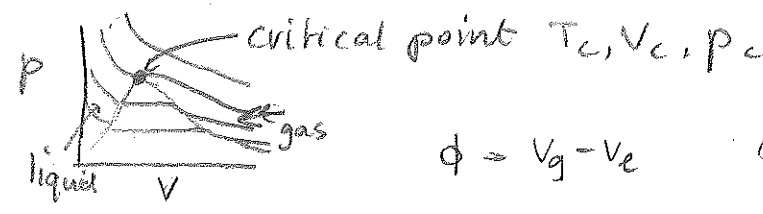 critical point Tc, Vc, pc
p
gas
liquid
V
ϕ = Vg - Vl